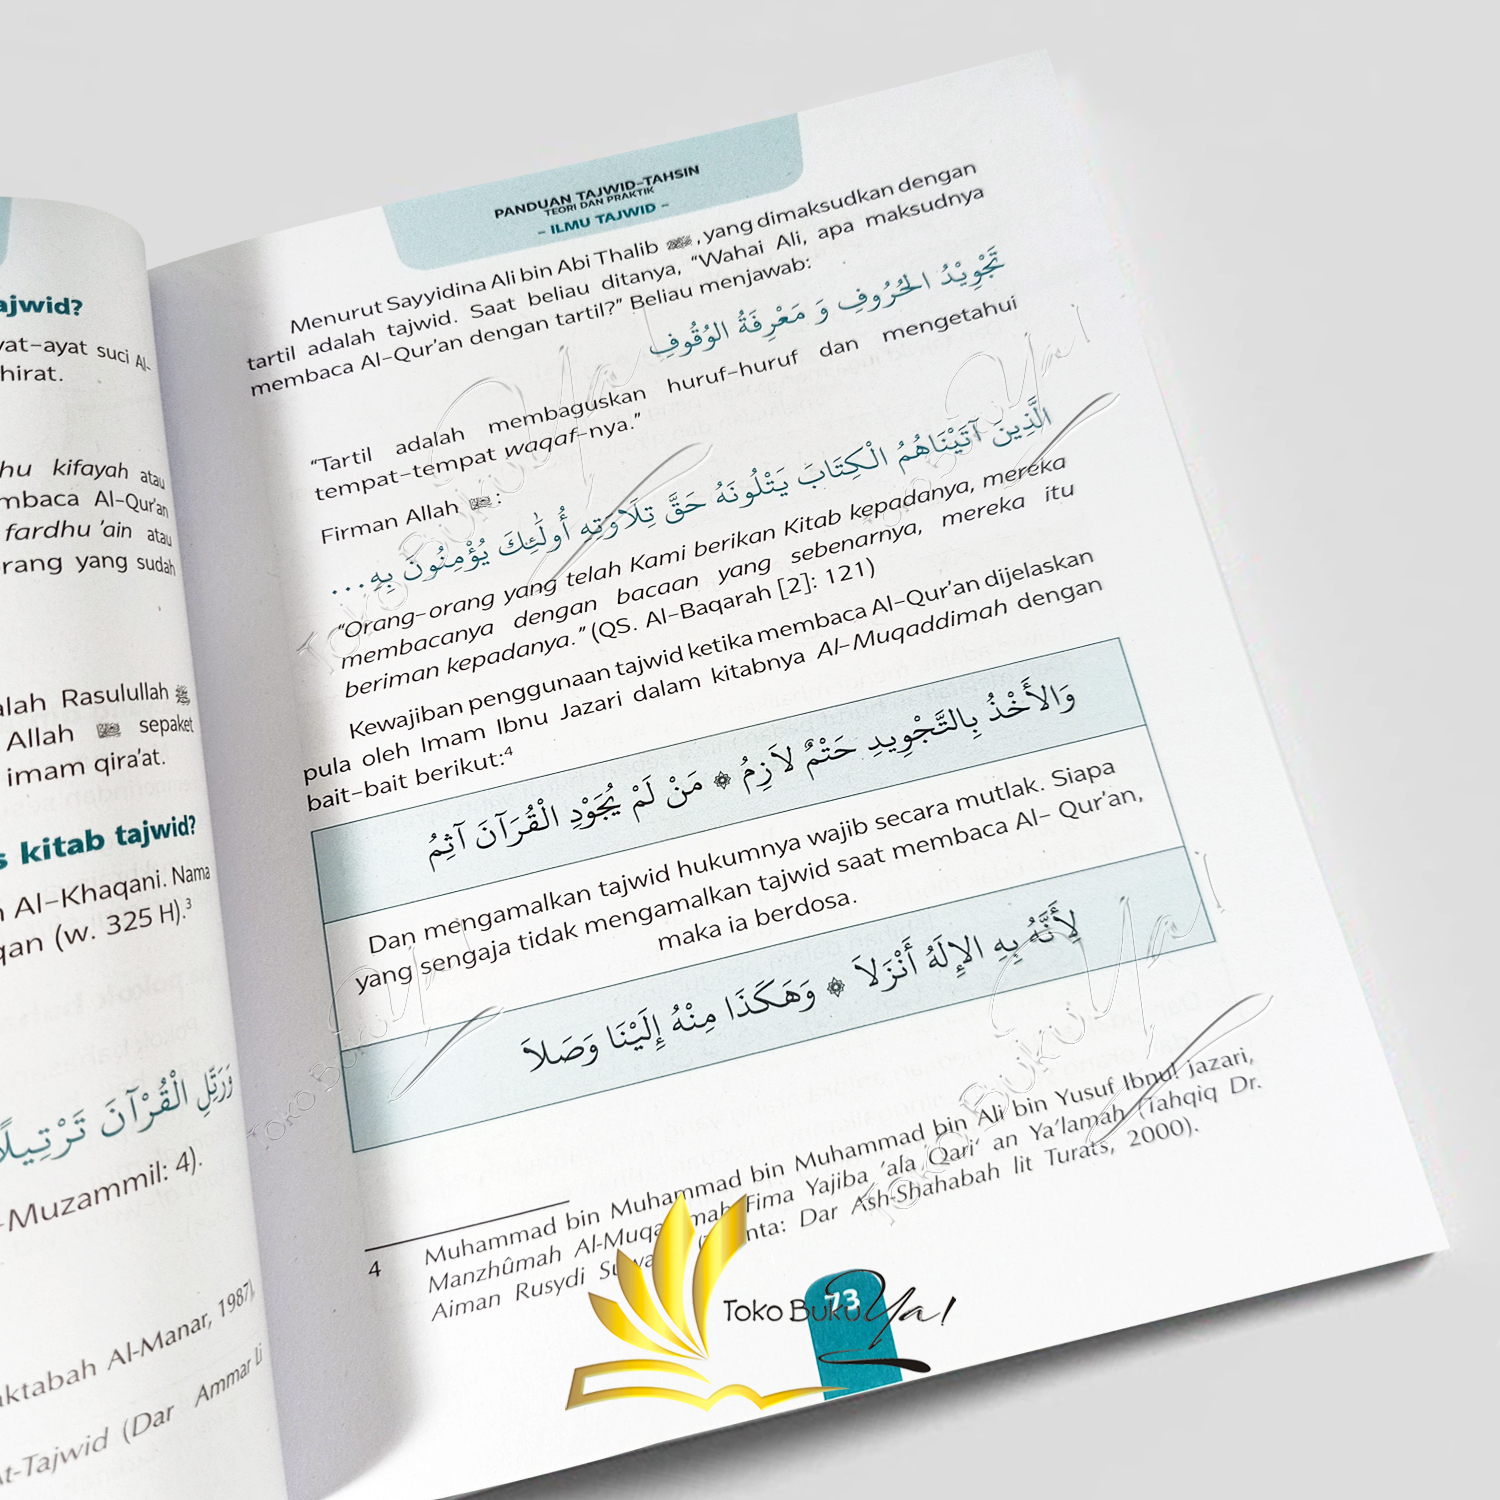 ajwid?
yat-ayat suci Al-
hirat.
hu kifayah atau
mbaca Al-Qur'an
fardhu 'ain atau
rang yang sudah
alah Rasulullah ﷺ
Allah sepaket
imam qira'at.
s kitab tajwid?
Al-Khaqani. Nama
qan (w. 325 H).³
وَرَتِّلِ الْقُرْآنَ تَرْتِيلًا
-Muzammil: 4).
aktabah Al-Manar, 1987),
At-Tajwid (Dar Ammar Li
PANDUAN TAJWID-TAHSIN
TEORI DAN PRAKTIK
- ILMU TAJWID -
Menurut Sayyidina Ali bin Abi Thalib , yang dimaksudkan dengan
tartil adalah tajwid. Saat beliau ditanya, "Wahai Ali, apa maksudnya
membaca Al-Qur'an dengan tartil?" Beliau menjawab:
تَجْوِيْدُ الحُرُوفِ وَ مَعْرِفَةُ الوُقُوفِ
"Tartil adalah membaguskan huruf-huruf dan mengetahui
tempat-tempat waqaf-nya."
Firman Allah :
الَّذِينَ آتَيْنَاهُمُ الْكِتَابَ يَتْلُونَهُ حَقَّ تِلَاوَتِهِ أُولَٰئِكَ يُؤْمِنُونَ بِهِ...
"Orang-orang yang telah Kami berikan Kitab kepadanya, mereka
membacanya dengan bacaan yang sebenarnya, mereka itu
beriman kepadanya." (QS. Al-Baqarah [2]: 121)
Kewajiban penggunaan tajwid ketika membaca Al-Qur'an dijelaskan
pula oleh Imam Ibnu Jazari dalam kitabnya Al-Muqaddimah dengan
bait-bait berikut:⁴
وَالأَخْذُ بِالتَّجْوِيدِ حَتْمٌ لاَزِمُ ۞ مَنْ لَمْ يُجَوْدِ الْقُرَآنَ آثِمُ
Dan mengamalkan tajwid hukumnya wajib secara mutlak. Siapa
yang sengaja tidak mengamalkan tajwid saat membaca Al- Qur'an,
maka ia berdosa.
لِأَنَّهُ بِهِ الإِلَهُ أَنْزَلاَ ۞ وَهَكَذَا مِنْهُ إِلَيْنَا وَصَلاَ
4 Muhammad bin Muhammad bin Muhammad bin Ali bin Yusuf Ibnul Jazari,
Manzhûmah Fima Yajiba 'ala Qari' an Ya'lamah (Tahqiq Dr.
Aiman Rusydi Dar Ash-Shahabah lit Turats, 2000).
73
Toko Buku Ya!